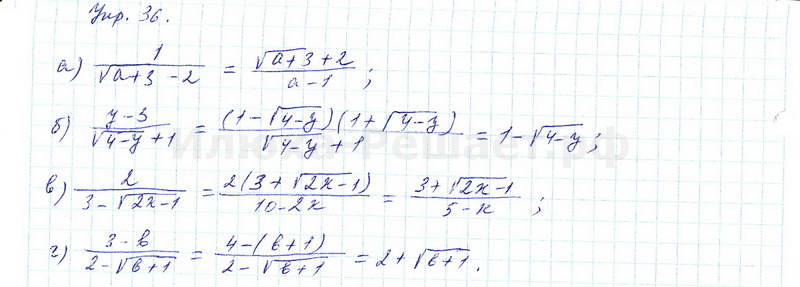 Упр. 36.
а) 1/(√(a+3) - 2) = (√(a+3) + 2)/(a - 1) ;
б) (y - 3)/(√(4-y) + 1) = ((1 - √(4-y))(1 + √(4-y)))/(√(4-y) + 1) = 1 - √(4-y) ;
в) 2/(3 - √(2x-1)) = (2(3 + √(2x-1)))/(10 - 2x) = (3 + √(2x-1))/(5 - x) ;
г) (3 - b)/(2 - √(b+1)) = (4 - (b+1))/(2 - √(b+1)) = 2 + √(b+1) .